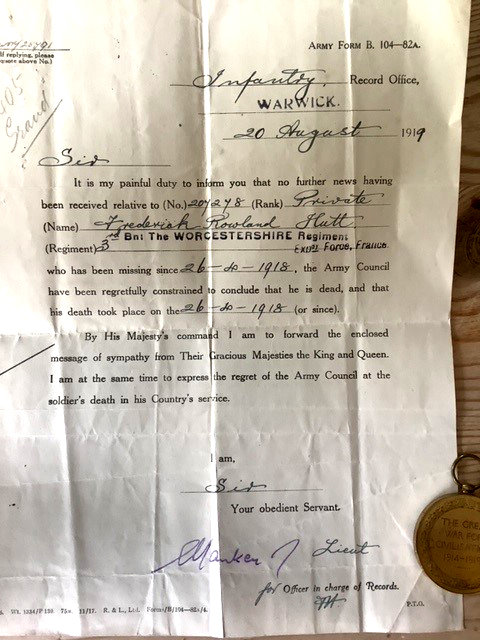 If replying, please
quote above No.)
Army Form B. 104—82A.
Infantry Record Office,
WARWICK.
20 August 1919
Sir
It is my painful duty to inform you that no further news having
been received relative to (No.) 207278 (Rank) Private
(Name) Frederick Rowland Hutt
(Regiment) 3rd Bn: The WORCESTERSHIRE Regiment
Force, France.
who has been missing since 26-10-1918, the Army Council
have been regretfully constrained to conclude that he is dead, and that
his death took place on the 26-10-1918 (or since).
By His Majesty's command I am to forward the enclosed
message of sympathy from Their Gracious Majesties the King and Queen.
I am at the same time to express the regret of the Army Council at the
soldier's death in his Country's service.
I am,
Sir
Your obedient Servant.
Lieut
for Officer in charge of Records.
P.T.O.
11/17. R. & L., Ltd. Forms/B/104—82A/4.
THE GREAT
WAR FOR
CIVILISATION